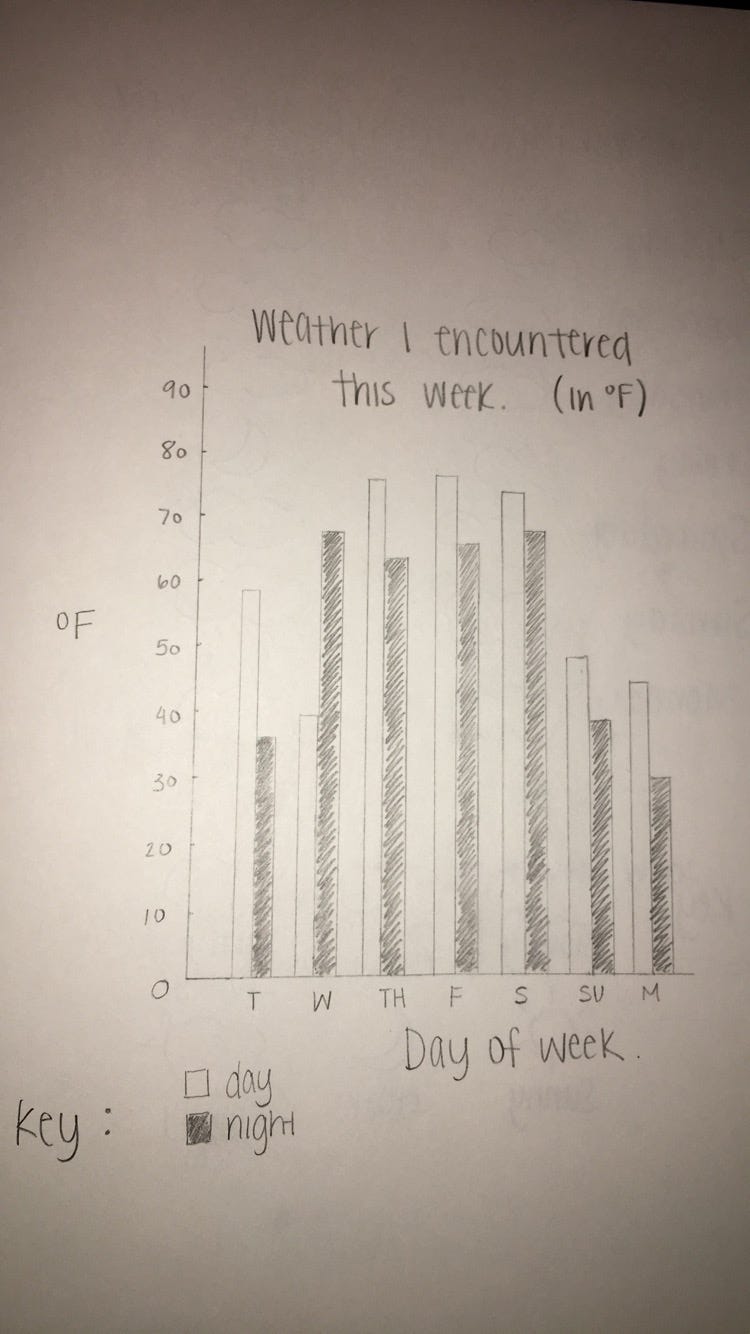 Weather I encountered
this week. (in °F)
90
80
70
60
50
40
30
20
10
0
°F
T W TH F S SU M
Day of week.
Key:
day
night